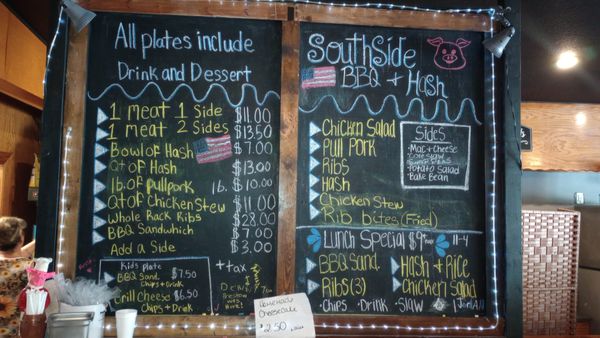 All plates include
Drink and Dessert
1 meat 1 Side $11.00
1 meat 2 Sides $13.50
Bowl of Hash $7.00
Qt of Hash $13.00
1b. of pull pork 1b. $10.00
Qt of Chicken Stew $11.00
Whole Rack Ribs $28.00
BBQ Sandwhich $7.00
Add a Side $3.00
Kids Plate
BBQ Sand. $7.50
Chips + Drink
Grill Cheese $6.50
Chips + Drink
+ tax
Homemade
Cheesecake
$2.50
SouthSide
BBQ + Hash
Chicken Salad
Pull Pork
Ribs
Hash
Chicken Stew
Rib bites (Fried)
Sides
Mac + cheese
Cole Slaw
Potato Salad
Bake Bean
Lunch Special $9 + tax 11-4
BBQ Sand.
Ribs (3)
Hash & Rice
Chicken Salad
Chips . Drink . Slaw